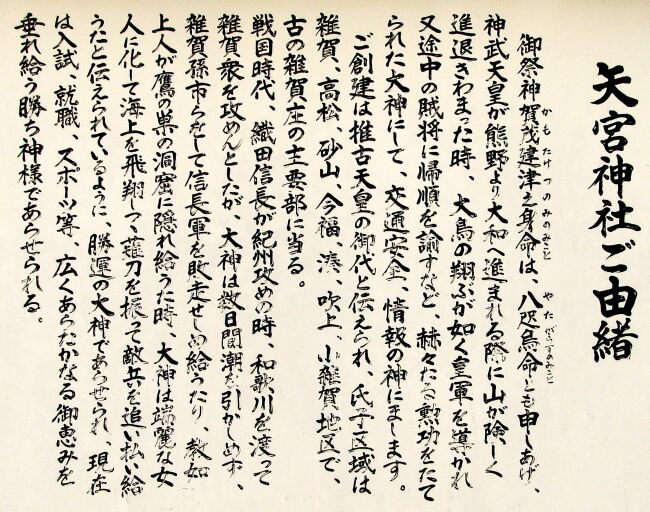 矢宮神社ご由緒
御祭神賀茂建津之身命は、八咫烏命とも申しあげ、
かもたけつのみのみこと
やたがらすのみこと
神武天皇が熊野より大和へ進まれる際に山が険しく
進退きわまった時、大鳥の翔ぶが如く皇軍を導かれ
又途中の賊将に帰順を諭すなど、赫々たる勲功をたて
られた大神にして、交通安全、情報の神にまします。
ご創建は推古天皇の御代と伝えられ、氏子区域は
雑賀、高松、砂山、今福、湊、吹上、小雑賀地区で、
古の雑賀庄の主要部に当る。
戦国時代、織田信長が紀州攻めの時、和歌川を渡って
雑賀衆を攻めんとしたが、大神は数日間潮を引かしめず、
雑賀孫市らをして信長軍を敗走せしめ給うたり、教如
上人が鷹の巣の洞窟に隠れ給うた時、大神は瑞麗な女
人に化して海上を飛翔しつゝ薙刀を振って敵兵を追い払い給
うたと伝えられているように、勝運の大神であらせられ、現在
は入試、就職、スポーツ等、広くあらたかなる御恵みを
垂れ給う勝ち神様であらせられる。